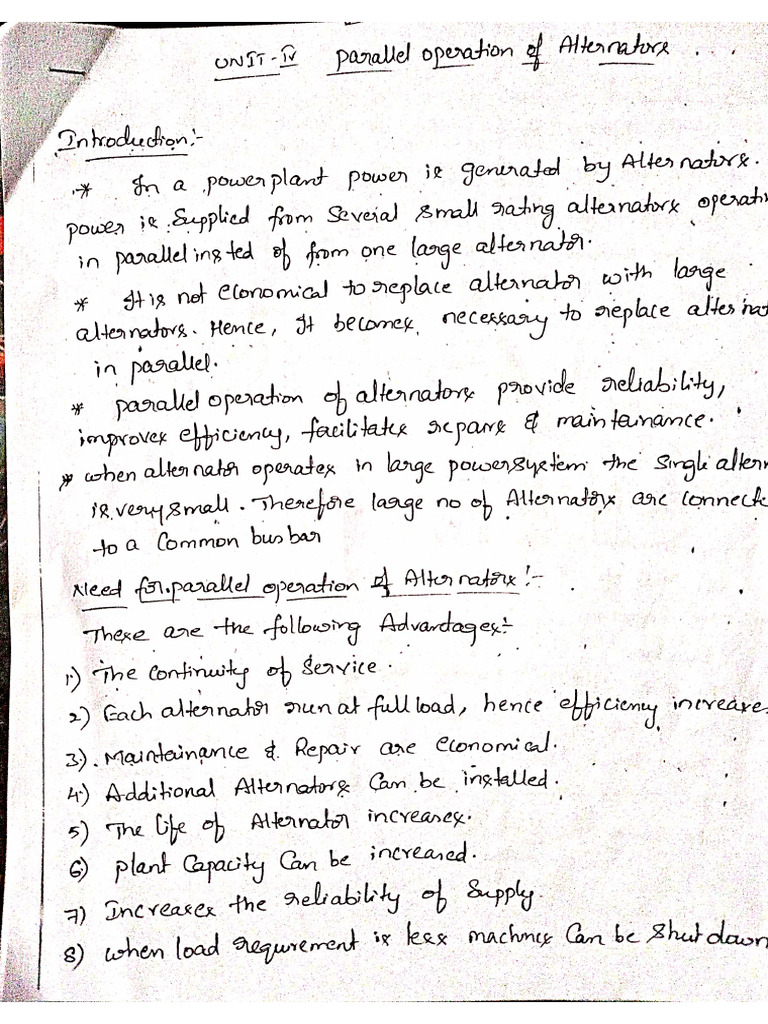 UNIT-IV parallel operation of Alternators ...
Introduction:-
* In a powerplant power is generated by Alternators.
power is Supplied from Several small rating alternators operati
in parallel insted of from one large alternator.
* It is not economical to replace alternator with large
alternators. Hence, It becomes necessary to replace alternat
in parallel.
* parallel operation of alternators provide reliability,
improves efficiency, facilitates repairs & maintainance.
* when alternator operates in large powersystem the single altern
is very small. Therefore large no of Alternators are connecte
to a Common bus bar
Need for parallel operation of Alternators:-
These are the following Advantages:-
1) The Continuity of Service.
2) Each alternator run at full load, hence efficiency increases
3). Maintainance & Repair are economical.
4) Additional Alternators Can be installed.
5) The life of Alternator increases.
6) plant Capacity Can be increased.
7) Increases the reliability of Supply.
8) when load requrement is less machines Can be Shut down